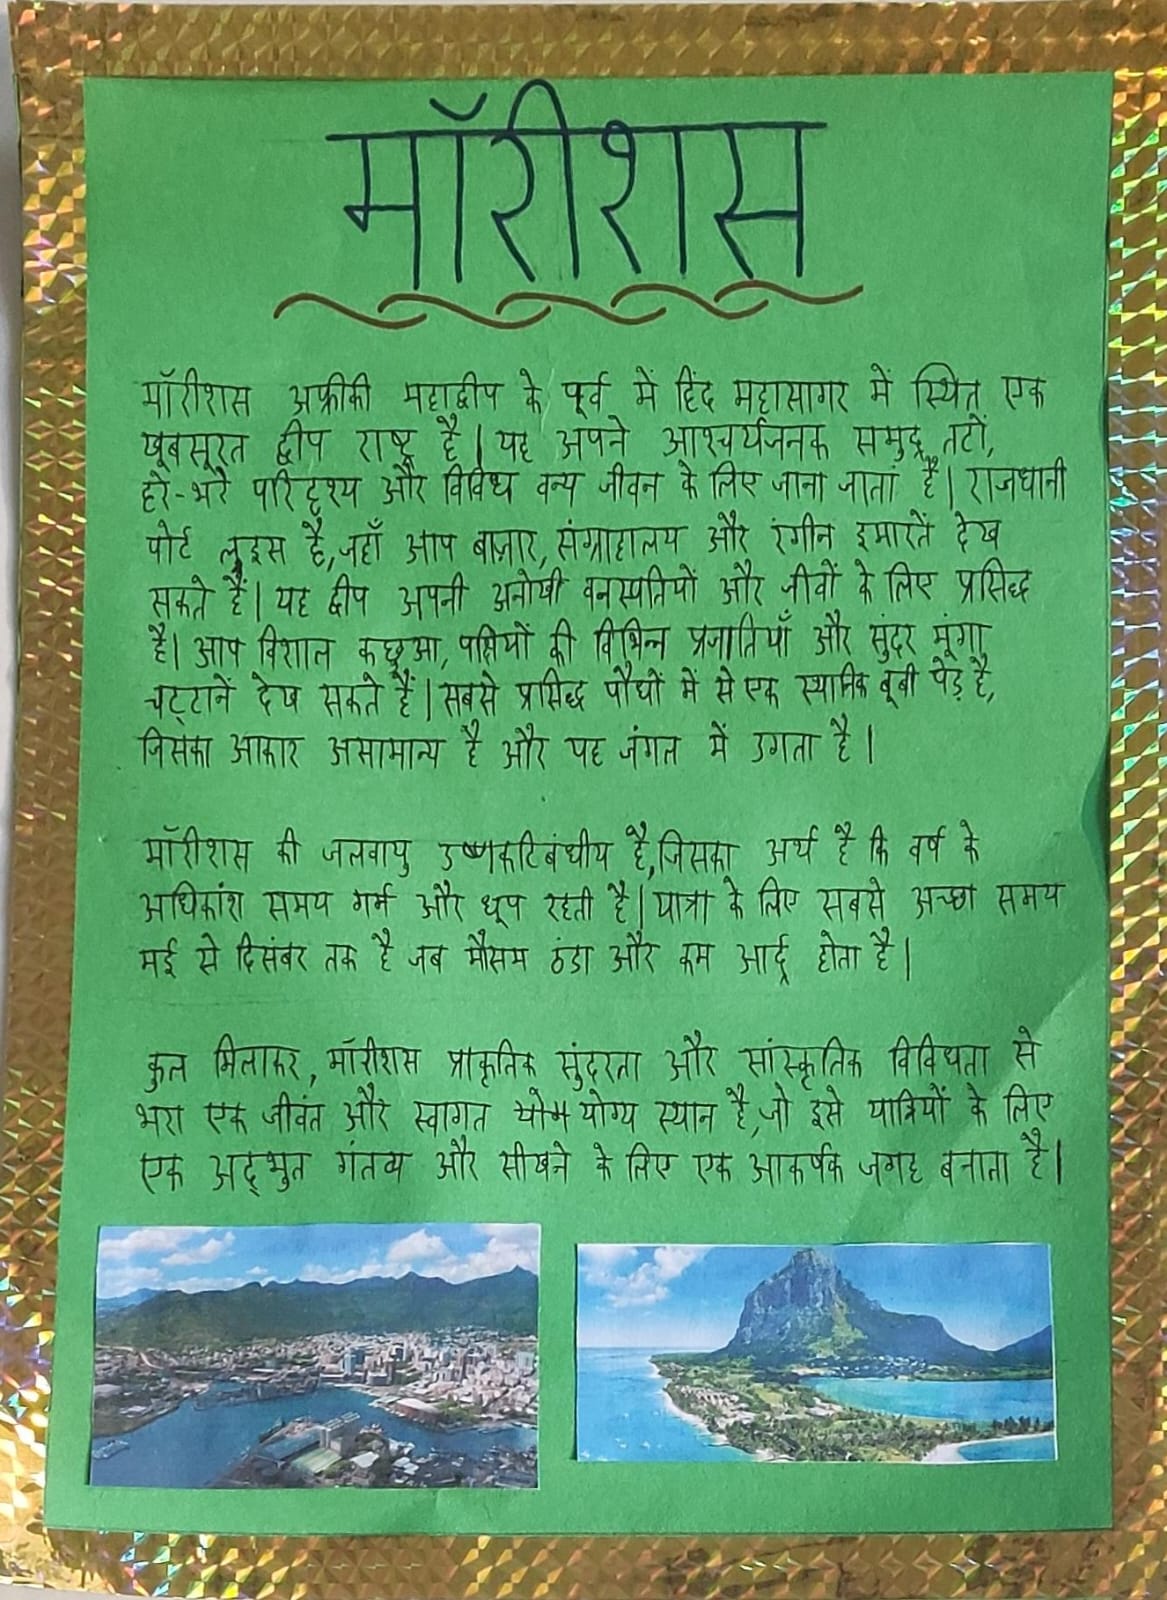 मॉरीशस
मॉरीशस अफ्रीकी महाद्वीप के पूर्व में हिंद महासागर में स्थित एक
खूबसूरत द्वीप राष्ट्र है | यह अपने आश्चर्यजनक समुद्र तटों,
हरे-भरे परिदृश्य और विविध वन्य जीवन के लिए जाना जाता है | राजधानी
पोर्ट लुइस है, जहाँ आप बाज़ार, संग्राहालय और रंगीन इमारतें देख
सकते हैं | यह द्वीप अपनी अनोखी वनस्पतियों और जीवों के लिए प्रसिद्ध
है | आप विशाल कछुआ, पक्षियों की विभिन्न प्रजातियाँ और सुंदर मूंगा
चट्टानें देख सकते हैं | सबसे प्रसिद्ध पौधों में से एक स्थानिक बूबी पेड़ है,
जिसका आकार असामान्य है और यह जंगल में उगता है |
मॉरीशस की जलवायु उष्णकटिबंधीय है, जिसका अर्थ है कि वर्ष के
अधिकांश समय गर्म और धूप रहती है | यात्रा के लिए सबसे अच्छा समय
मई से दिसंबर तक है जब मौसम ठंडा और कम आर्द्र होता है |
कुल मिलाकर, मॉरीशस प्राकृतिक सुंदरता और सांस्कृतिक विविधता से
भरा एक जीवंत और स्वागत योग्य स्थान है, जो इसे यात्रियों के लिए
एक अद्भुत गंतव्य और सीखने के लिए एक आकर्षक जगह बनाता है |